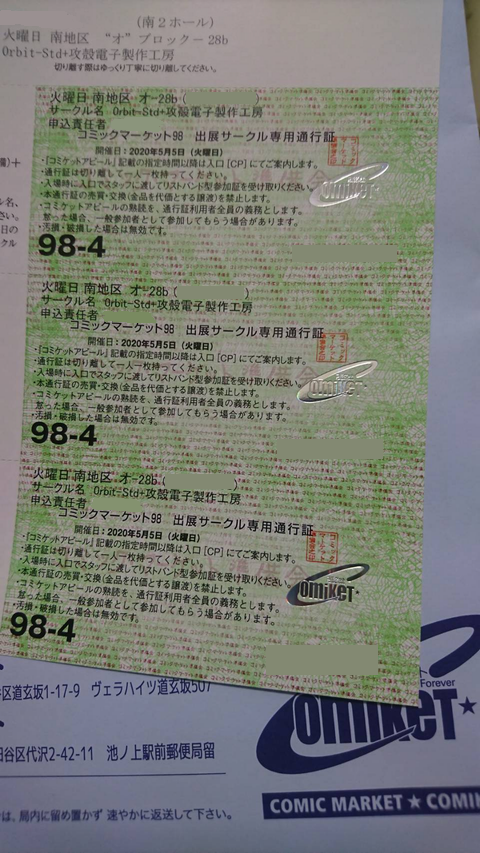 (南2ホール)
火曜日 南地区 “オ”ブロック－28b
Orbit-Std+攻殻電子製作工房
切り離す際はゆっくり丁寧に切り離してください。
火曜日 南地区 オ-28b (
サークル名 Orbit-Std+攻殻電子製作工房
申込責任者
コミックマーケット98 出展サークル専用通行証
開催日：2020年5月5日（火曜日）
・「コミケットアピール」記載の指定時間以降は入口［CP］にてご案内します。
・通行証は切り離して一人一枚持ってください。
・入場時に入口でスタッフに渡してリストバンド型参加証を受け取りください。
・本通行証の売買・交換(金品を代価とする譲渡)を禁止します。
・コミケットアピールの熟読を、通行証利用者全員の義務とします。
怠った場合、一般参加者として参加してもらう場合があります。
・汚損・破損した場合は無効です。
98-4
comiket
火曜日 南地区 オ-28b (
サークル名 Orbit-Std+攻殻電子製作工房
申込責任者
コミックマーケット98 出展サークル専用通行証
開催日：2020年5月5日（火曜日）
・「コミケットアピール」記載の指定時間以降は入口［CP］にてご案内します。
・通行証は切り離して一人一枚持ってください。
・入場時に入口でスタッフに渡してリストバンド型参加証を受け取りください。
・本通行証の売買・交換(金品を代価とする譲渡)を禁止します。
・コミケットアピールの熟読を、通行証利用者全員の義務とします。
怠った場合、一般参加者として参加してもらう場合があります。
・汚損・破損した場合は無効です。
98-4
comiket
火曜日 南地区 オ-28b
サークル名 Orbit-Std+攻殻電子製作工房
申込責任者
コミックマーケット98 出展サークル専用通行証
開催日：2020年5月5日（火曜日）
・「コミケットアピール」記載の指定時間以降は入口［CP］にてご案内します。
・通行証は切り離して一人一枚持ってください。
・入場時に入口でスタッフに渡してリストバンド型参加証を受け取りください。
・本通行証の売買・交換(金品を代価とする譲渡)を禁止します。
・コミケットアピールの熟読を、通行証利用者全員の義務とします。
怠った場合、一般参加者として参加してもらう場合があります。
・汚損・破損した場合は無効です。
98-4
comiket
区道玄坂1-17-9 ヴェラハイツ道玄坂507
田谷区代沢2-42-11 池ノ上駅前郵便局留
は、局内に留め置かず 速やかに返送して下さい。
Forever
comiket★
COMIC MARKET ★ COMI